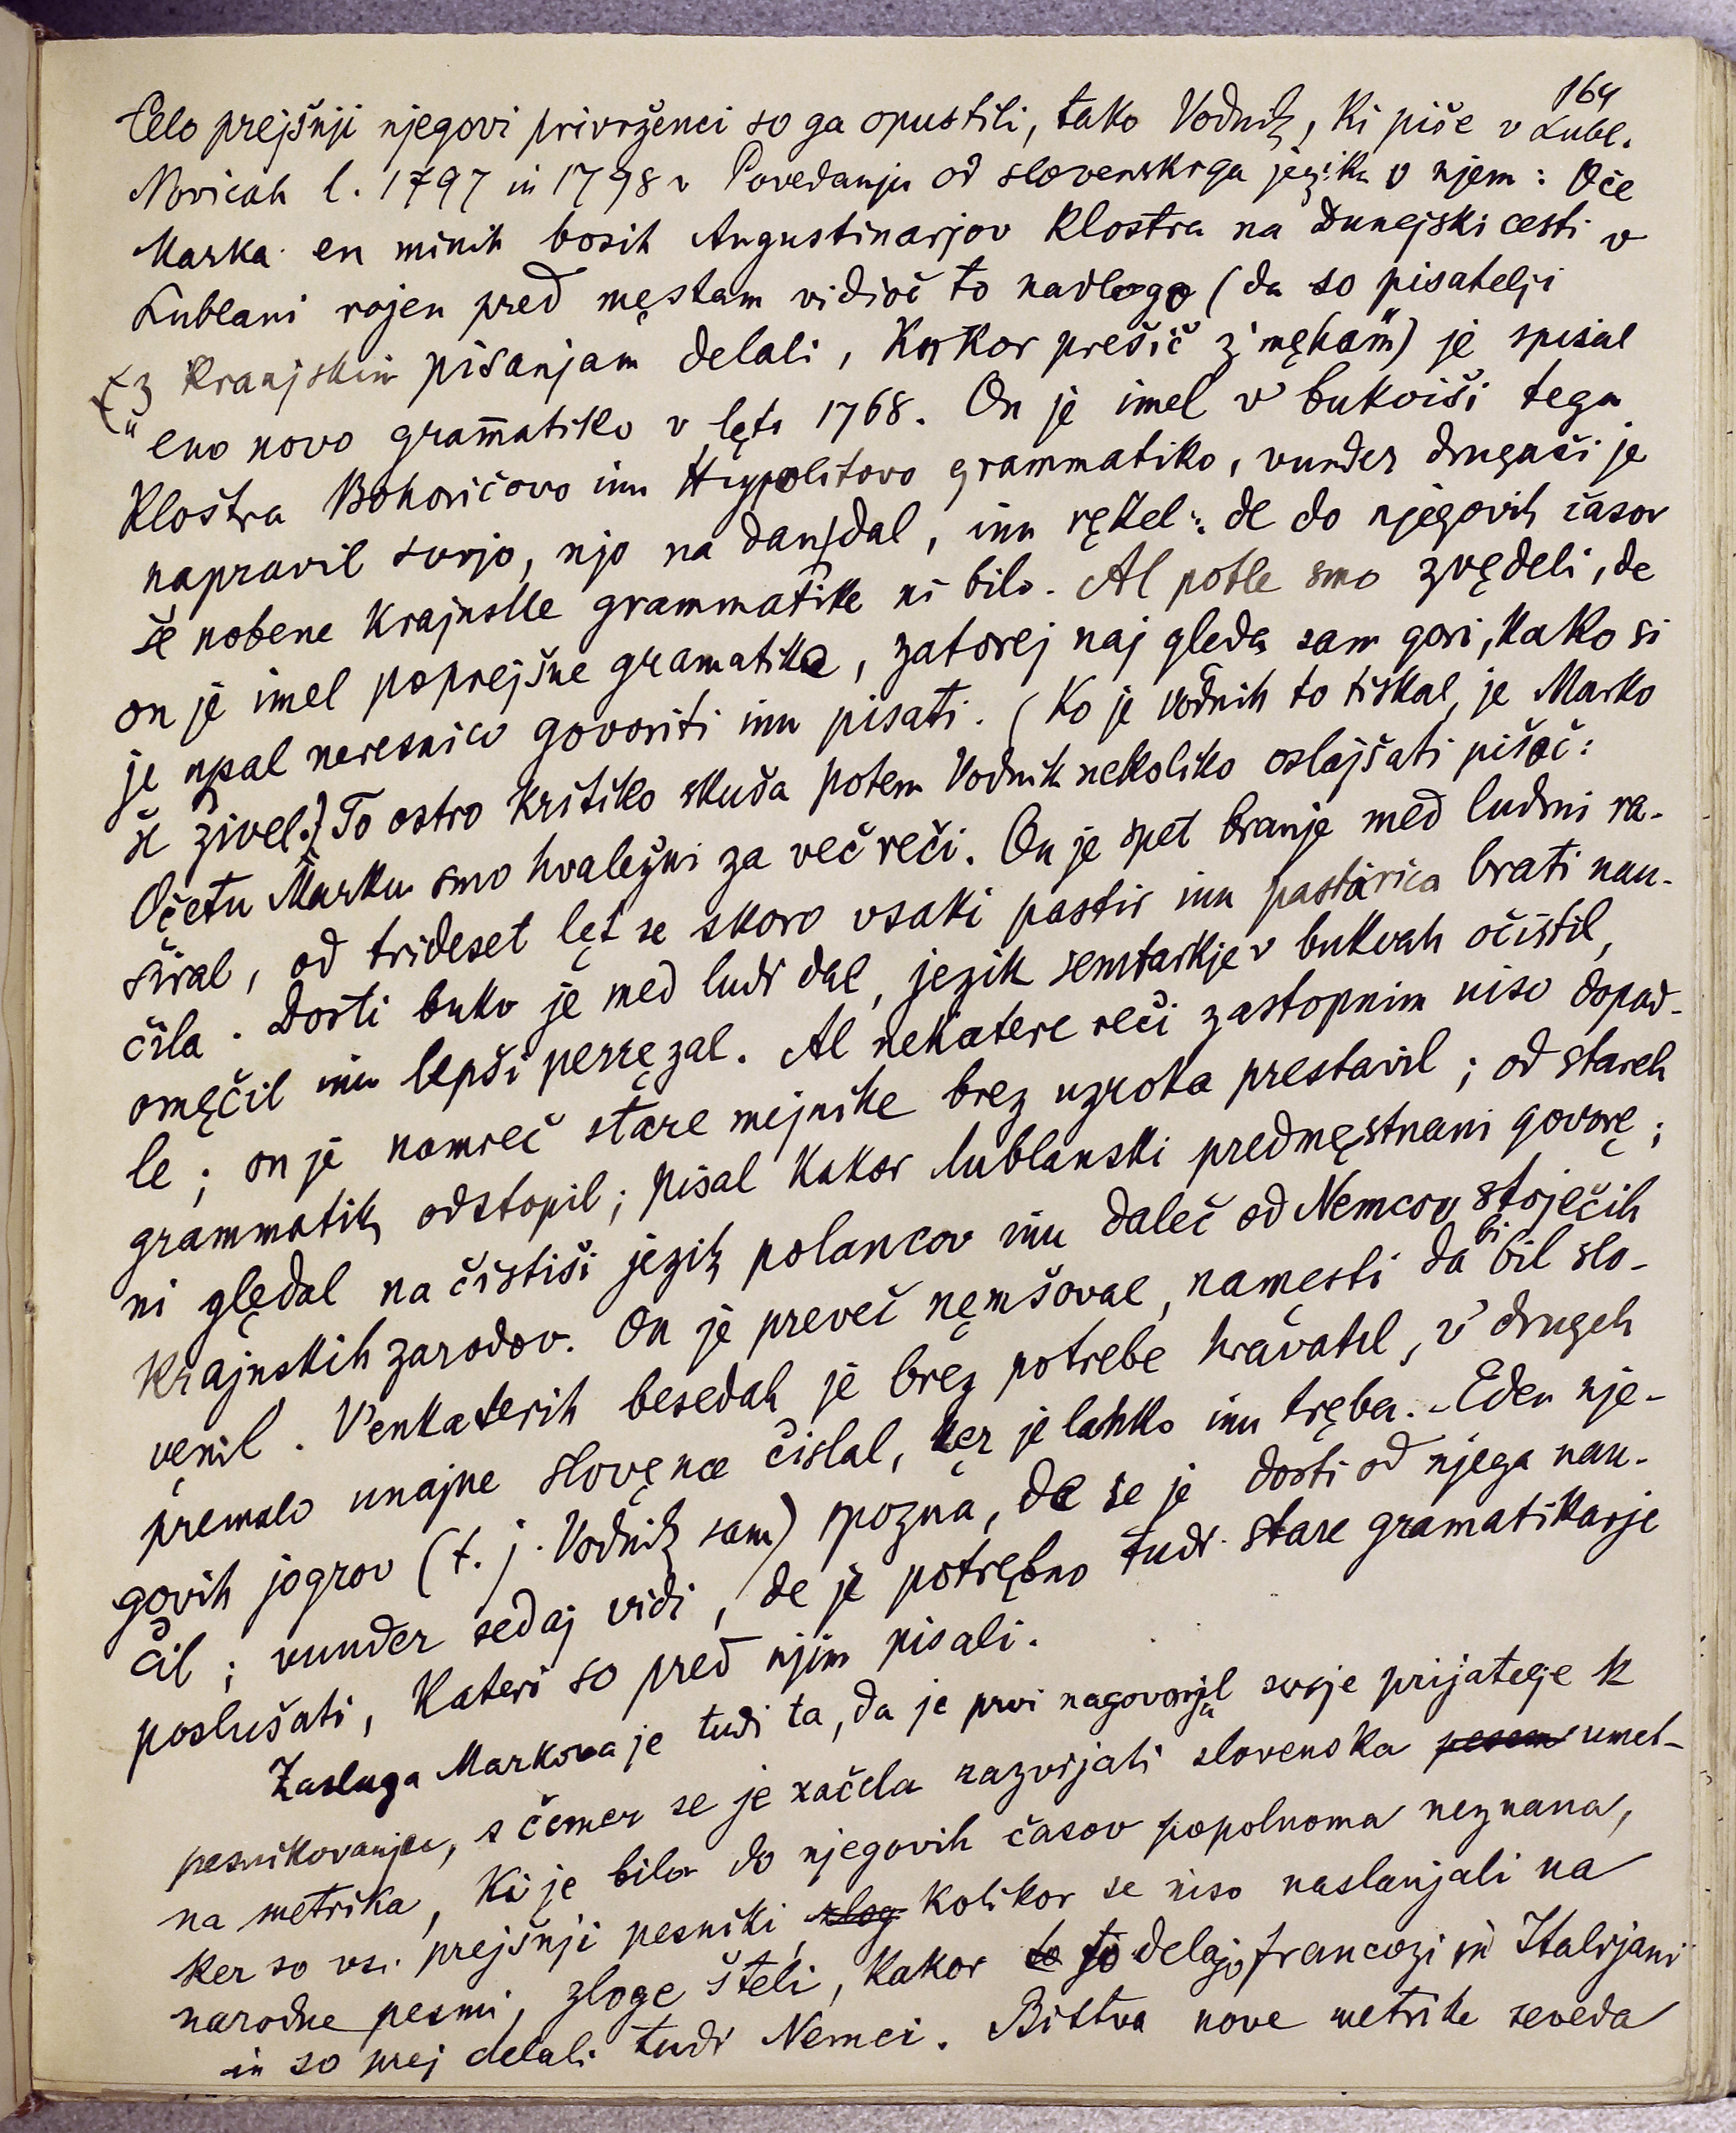 164
Celo prejšnji njegovi privrženci so ga opustili, tako Vodnik, ki piše v Lubl.
Novicah l. 1797 in 1798 v Povedanju od slovenskega jezika v njem: Oče
Marka en minih bosih Augustinarjov Kloštra na dunejski cesti v
Lublani rojen pred męstam vidioč to nadlogo (da so pisatelji
"z kranjskim pisanjam delali, kakor prešič z' męham") je spisal
eno novo grammatiko v lęti 1768. On je imel v' bukviši tega
Kloštra Bohoričovo inu Hypolitovo grammatiko, vunder drugači je
napravil svojo, njo na dan dal, inu rękel: de do njegovih časov
še nobene krajnske grammatike ni bilo. Al potle smo zvędeli, de
on je imel poprejšne gramatike, zatorej naj gleda sam gori, kako si
je upal neresnico govoriti inu pisati. (Ko je Vodnik to tiskal, je Marko
še živel.) To ostro kritiko skuša potem Vodnik nekoliko oslajšati pišoč:
Očetu Marku smo hvaležni za več reči. On je spet branje med ludmi ra-
širal, od trideset lęt se skoro vsaki pastir inu pastarica brati nau-
čila. Dosti bukv je med ludi dal, jezik semtarkje v bukvah očistil,
omęčil inu lepši perręzal. Al nekatere reči zastopnim niso dopad-
le; on je namreč stare mejnike brez uzroka prestavil; od stareh
grammatik odstopil; pisal kakor lublanski predmęstnani govorę;
ni ględal na čistiši jezik polancov inu daleč od Nemcov stoječih
krajnskih zarodov. On je preveč nęmšoval, namęsti da bi bil slo-
vęnil. V'enkaterih besedah je brez potrebe hravatil, v' drugeh
premalo unajne slovęnce čislal, ker je lahko inu tręba. - Eden nje-
govih jogrov (t. j. Vodnik sam) spozna, de se je dosti od njega nau-
čil; vunder sedaj vidi, de je potrębno tudi stare gramatikarje
poslušati, kateri so pred njim pisali.
Zasluga Markova je tudi ta, da je prvi nagovarjal svoje prijatelje k
pesnikovanju, s čemer se je začela razvijati slovenska pesem umet-
na metrika, ki je bila do njegovih časov popolnoma neznana,
ker so vsi prejšnji pesniki, zlog kolikor se niso naslanjali na
narodne pesmi, zloge šteli, kakor to to delajo francozi in Italijani
in so prej delali tudi Nemci. Bistva nove metrike seveda